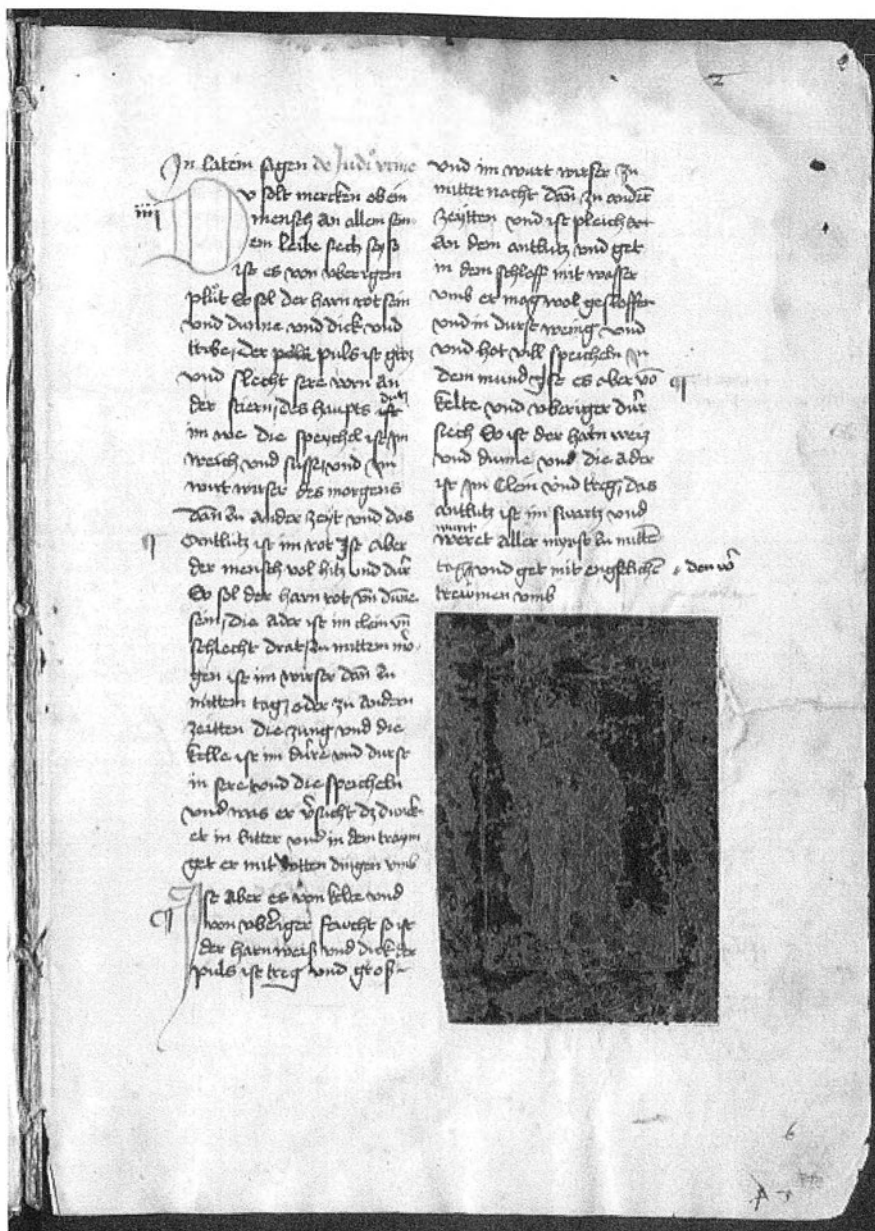 2
In latein sagen de Judi vrine
iiij
u solt mercken ob ein
mensch an allem sein
em leibe siech sey so
ist es von vberigem
plůt So sol der harn rot sein
vnd dunne vnd dick vnd
tribe, der puls ist groz
vnd slecht sere vorn an
der stiern, des haupts ist
im we die speychel ist im
weich vnd susse, vnd im
wirt wirser des morgens
dan zu ander zeyt vnd das
Antlutz ist im rot Ist aber
der mensch vol hitz vnd durr
So sol der harn rot vn dunne
sein, die ader ist im clein vn
schlecht drat zu mittem mor
gen ist im wirser dan zu
mittem tag, oder zu andern
zeitten die zung vnd die
kelle ist im durre vnd durst
in sere, vnd die speicheln
vnd was er versucht dz dunck
et in bitter vnd in dem traym
get er mit rotten dingen vmb
Ist aber es von kelte vnd
von vberiger feucht so ist
der harn weiß vnd dick der
puls ist treg vnd groß
vnd im wurt wirser zu
mitter nacht dan zu andern
zeytten vnd ist pleich
an dem antlutz vnd get
in dem schloff mit wasser
vmb er mag wol geschloffen
vnd in durst wenig vnd
vnd hot vill speicheln in
dem mund Ist es aber von
kelte vnd vberiger durr
siech So ist der harn weiß
vnd dunne vnd die ader
ist im clein vnd treg, das
antlutz ist im swartz vnd
wurt
weret aller wirst zu mittem
tag, vnd get mit engstlichen
trewmen vmb
6